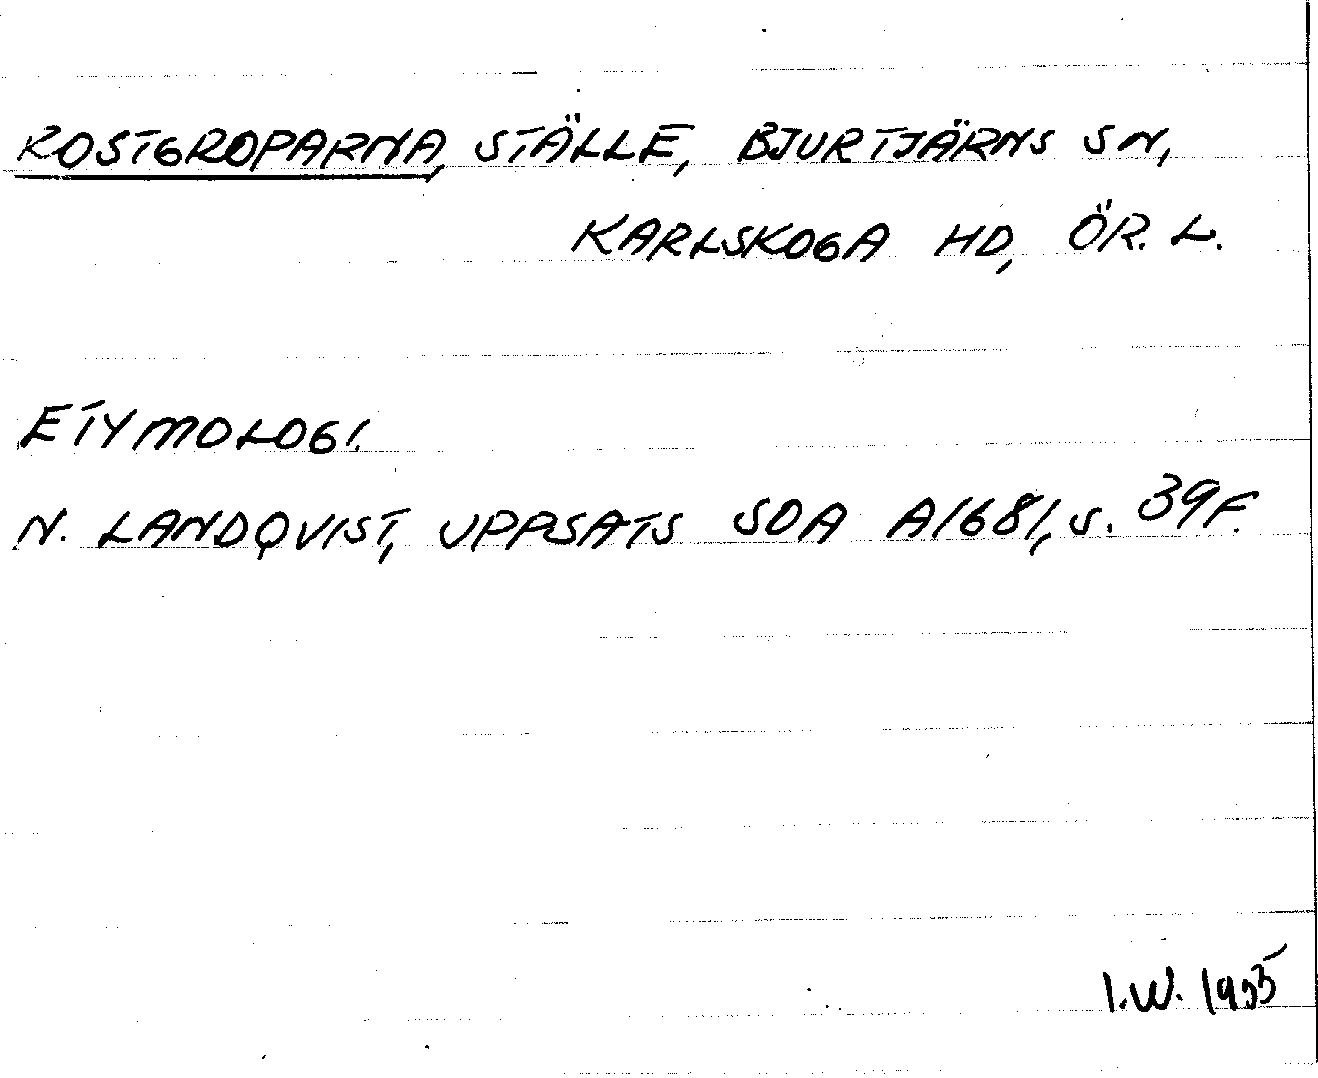 ROSTGROPARNA, STÄLLE, BJURTJÄRNS SN,
KARLSKOGA HD, ÖR. L.
ETYMOLOGI.
N. LANDQVIST, UPPSATS SOA A1681, S. 39F.
I.W. 1955